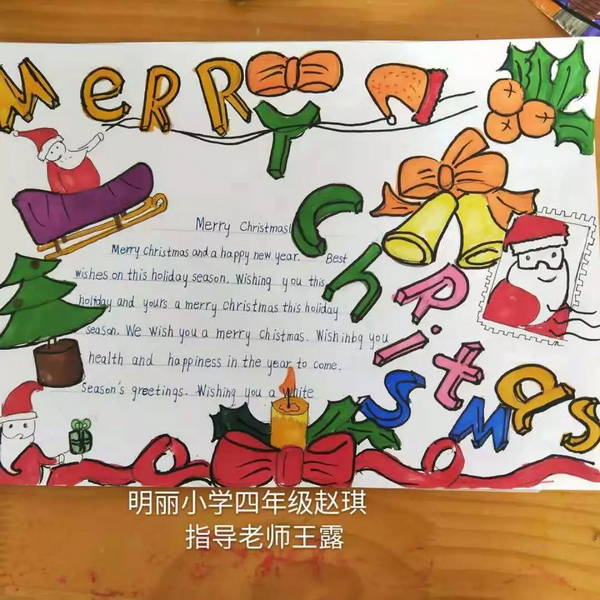 MeRRY
ChRistmas
Merry Christmas!
Merry christmas and a happy new year. Best
wishes on this holiday season. Wishing you this
holiday and yours a merry christmas this holiday
season. We wish you a merry chistmas. Wishinbg you
health and happiness in the year to come.
Season's greetings. Wishing you a white
明丽小学四年级赵琪
指导老师王露